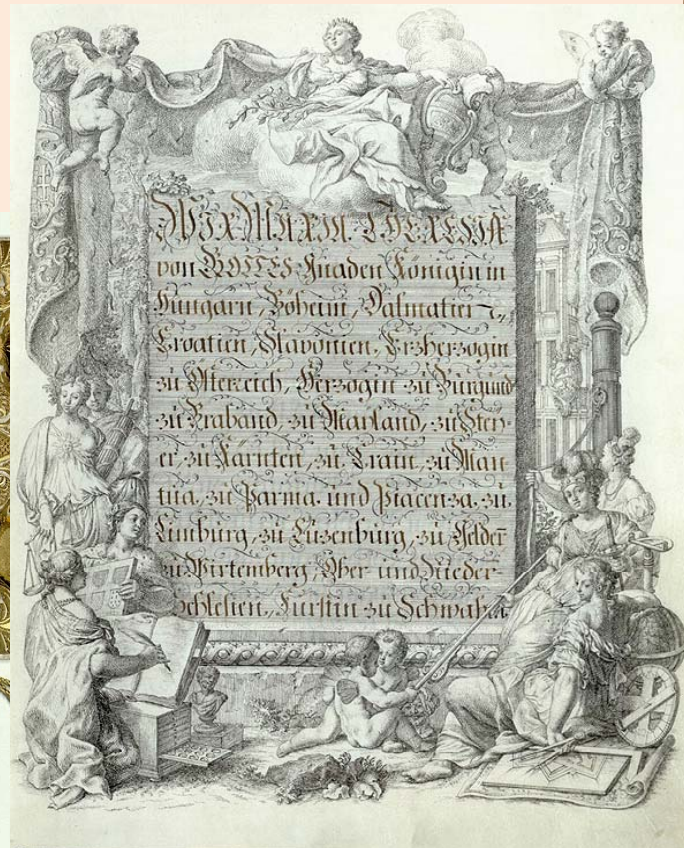 WIR MARIA THERESIA
von GOTTES Gnaden Königin in
Hungarn, Böheim, Dalmatien,
Croatien, Slavonien, Erzherzogin
zu Österreich, Herzogin zu Burgund
zu Braband, zu Mayland, zu Stey-
er, zu Kärnten, zu Crain, zu Man-
tua, zu Parma und Piacenza, zu
Limburg, zu Lüzenburg, zu Geldern̄
zu Wirtemberg, Ober und Nieder
Schlesien, Fürstin zu Schwaben